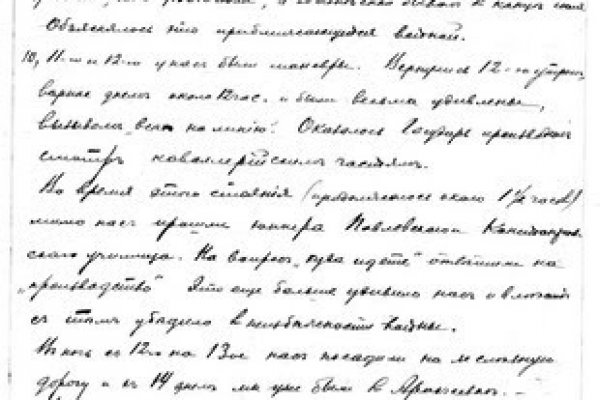 и
Объяснялось это приближающейся войной.
10, 11-го и 12-го у нас были маневры. Вернулись 12-го утром,
вернее днем около 12 час. и были весьма удивлены,
вызовом „всех на линию“. Оказалось Государь производит
смотръ кавалерийским частям.
Во время этого стояния (продолжалось около 1½ часов)
мимо нас прошли юнкера Павловского
ского училища. На вопрос „куда идете“ ответили на
„производство“ Это еще больше удивило нас и
с тем убедило в неизбежности войны.
В ночь с 12го на 13ое нас посадили на железную
дорогу и с 14 днем мы уже были в